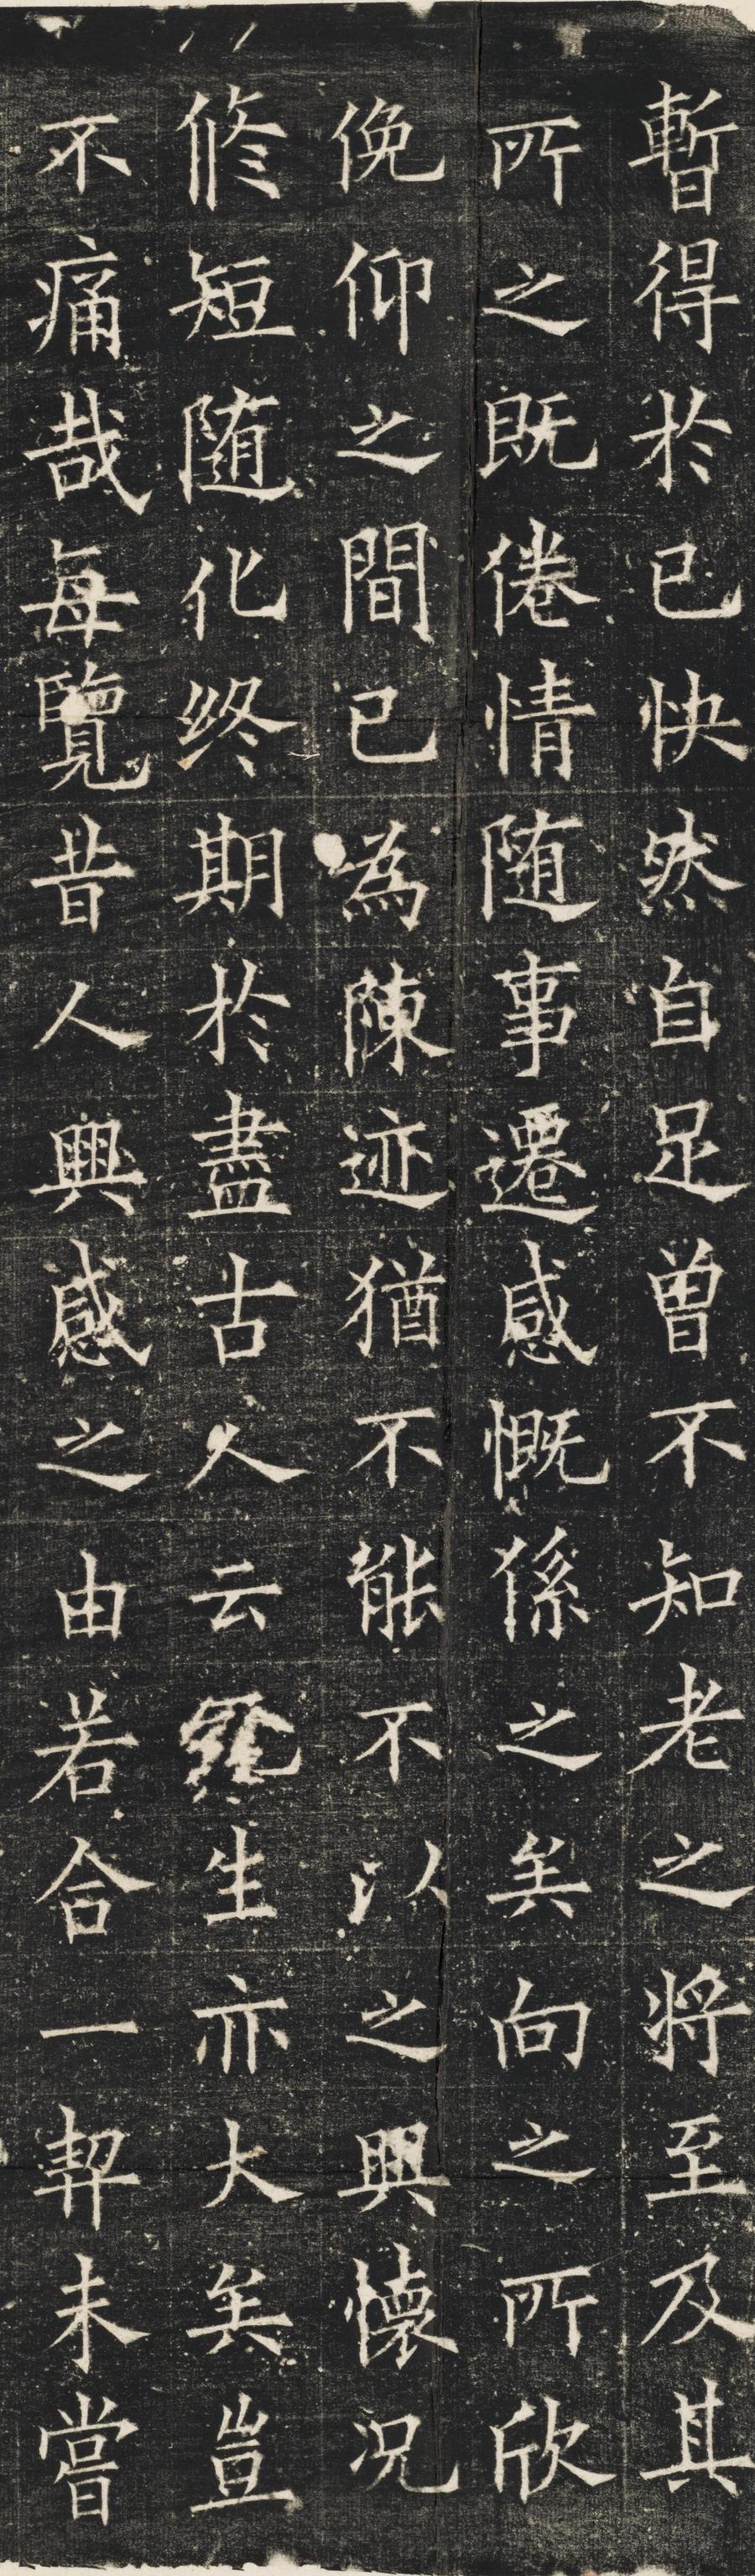 暫得於己快然自足曾不知老之將至及其
所之既倦情随事遷感慨係之矣向之所欣
俛仰之間已為陳迹猶不能不以之興懷況
修短随化終期於盡古人云死生亦大矣豈
不痛哉每覽昔人興感之由若合一契未嘗